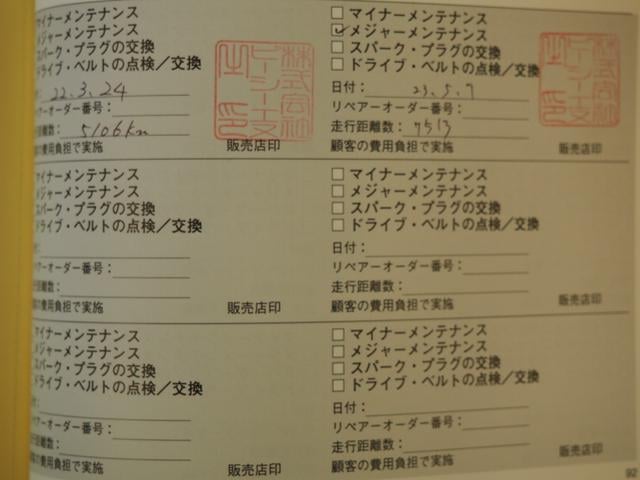 マイナーメンテナンス
メジャーメンテナンス
スパーク・プラグの交換
ドライブ・ベルトの点検／交換
22.3.24
リペアーオーダー番号：
走行距離数： 5106km
の費用負担で実施
販売店印
マイナーメンテナンス
メジャーメンテナンス
スパーク・プラグの交換
ドライブ・ベルトの点検／交換
日付： 23.5.7
リペアーオーダー番号：
走行距離数： 7513
顧客の費用負担で実施
販売店印
株式会社
マイナーメンテナンス
メジャーメンテナンス
スパーク・プラグの交換
ドライブ・ベルトの点検／交換
ペアーオーダー番号：
行距離数：
の費用負担で実施
販売店印
マイナーメンテナンス
メジャーメンテナンス
スパーク・プラグの交換
ドライブ・ベルトの点検／交換
日付：
リペアーオーダー番号：
走行距離数：
顧客の費用負担で実施
販売店印
マイナーメンテナンス
メジャーメンテナンス
スパーク・プラグの交換
ドライブ・ベルトの点検／交換
ペアーオーダー番号：
行距離数：
の費用負担で実施
販売店印
マイナーメンテナンス
メジャーメンテナンス
スパーク・プラグの交換
ドライブ・ベルトの点検／交換
日付：
リペアーオーダー番号：
走行距離数：
顧客の費用負担で実施
販売店印
92